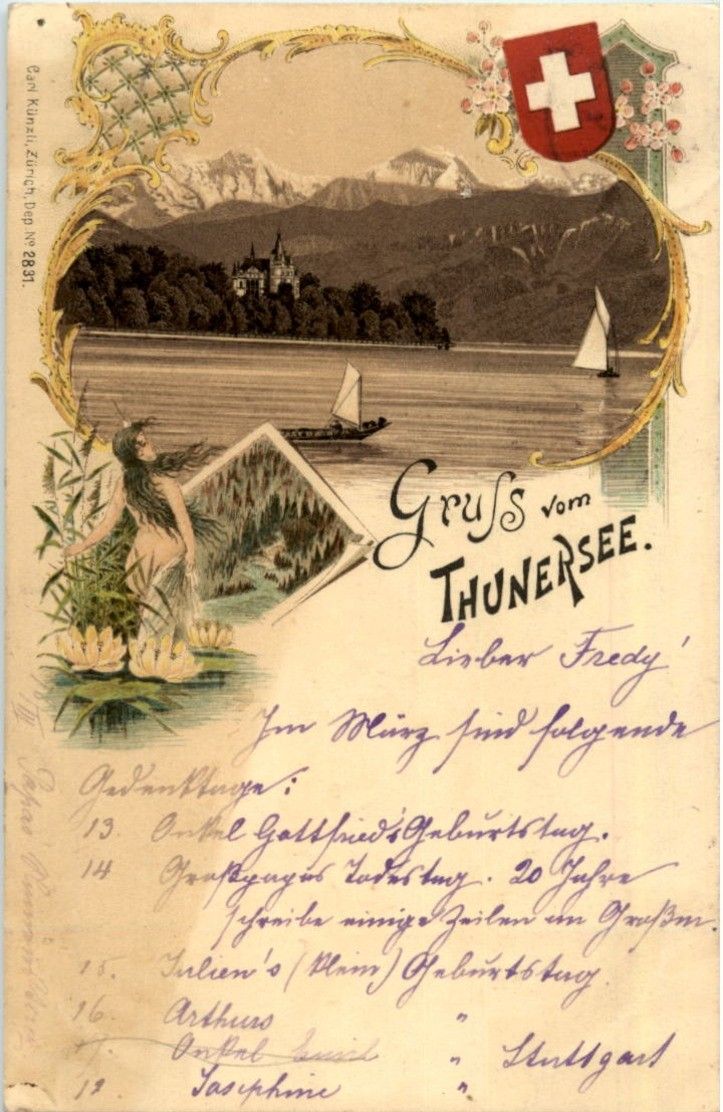 Carl Künzli, Zürich, Dep Nº 2831.
Gruss vom
THUNERSEE.
Lieber Fredy!
Im März sind folgende
Gedenktage:
13. Onkel Gottfried's Geburtstag.
14 Großpapas Todestag. 20 Jahre
schreibe einige Zeilen an Großm.
15. Julien's (Klein) Geburtstag.
16. Arthurs "
Onkel Emil " Stuttgart
19 Josephine "
Papas